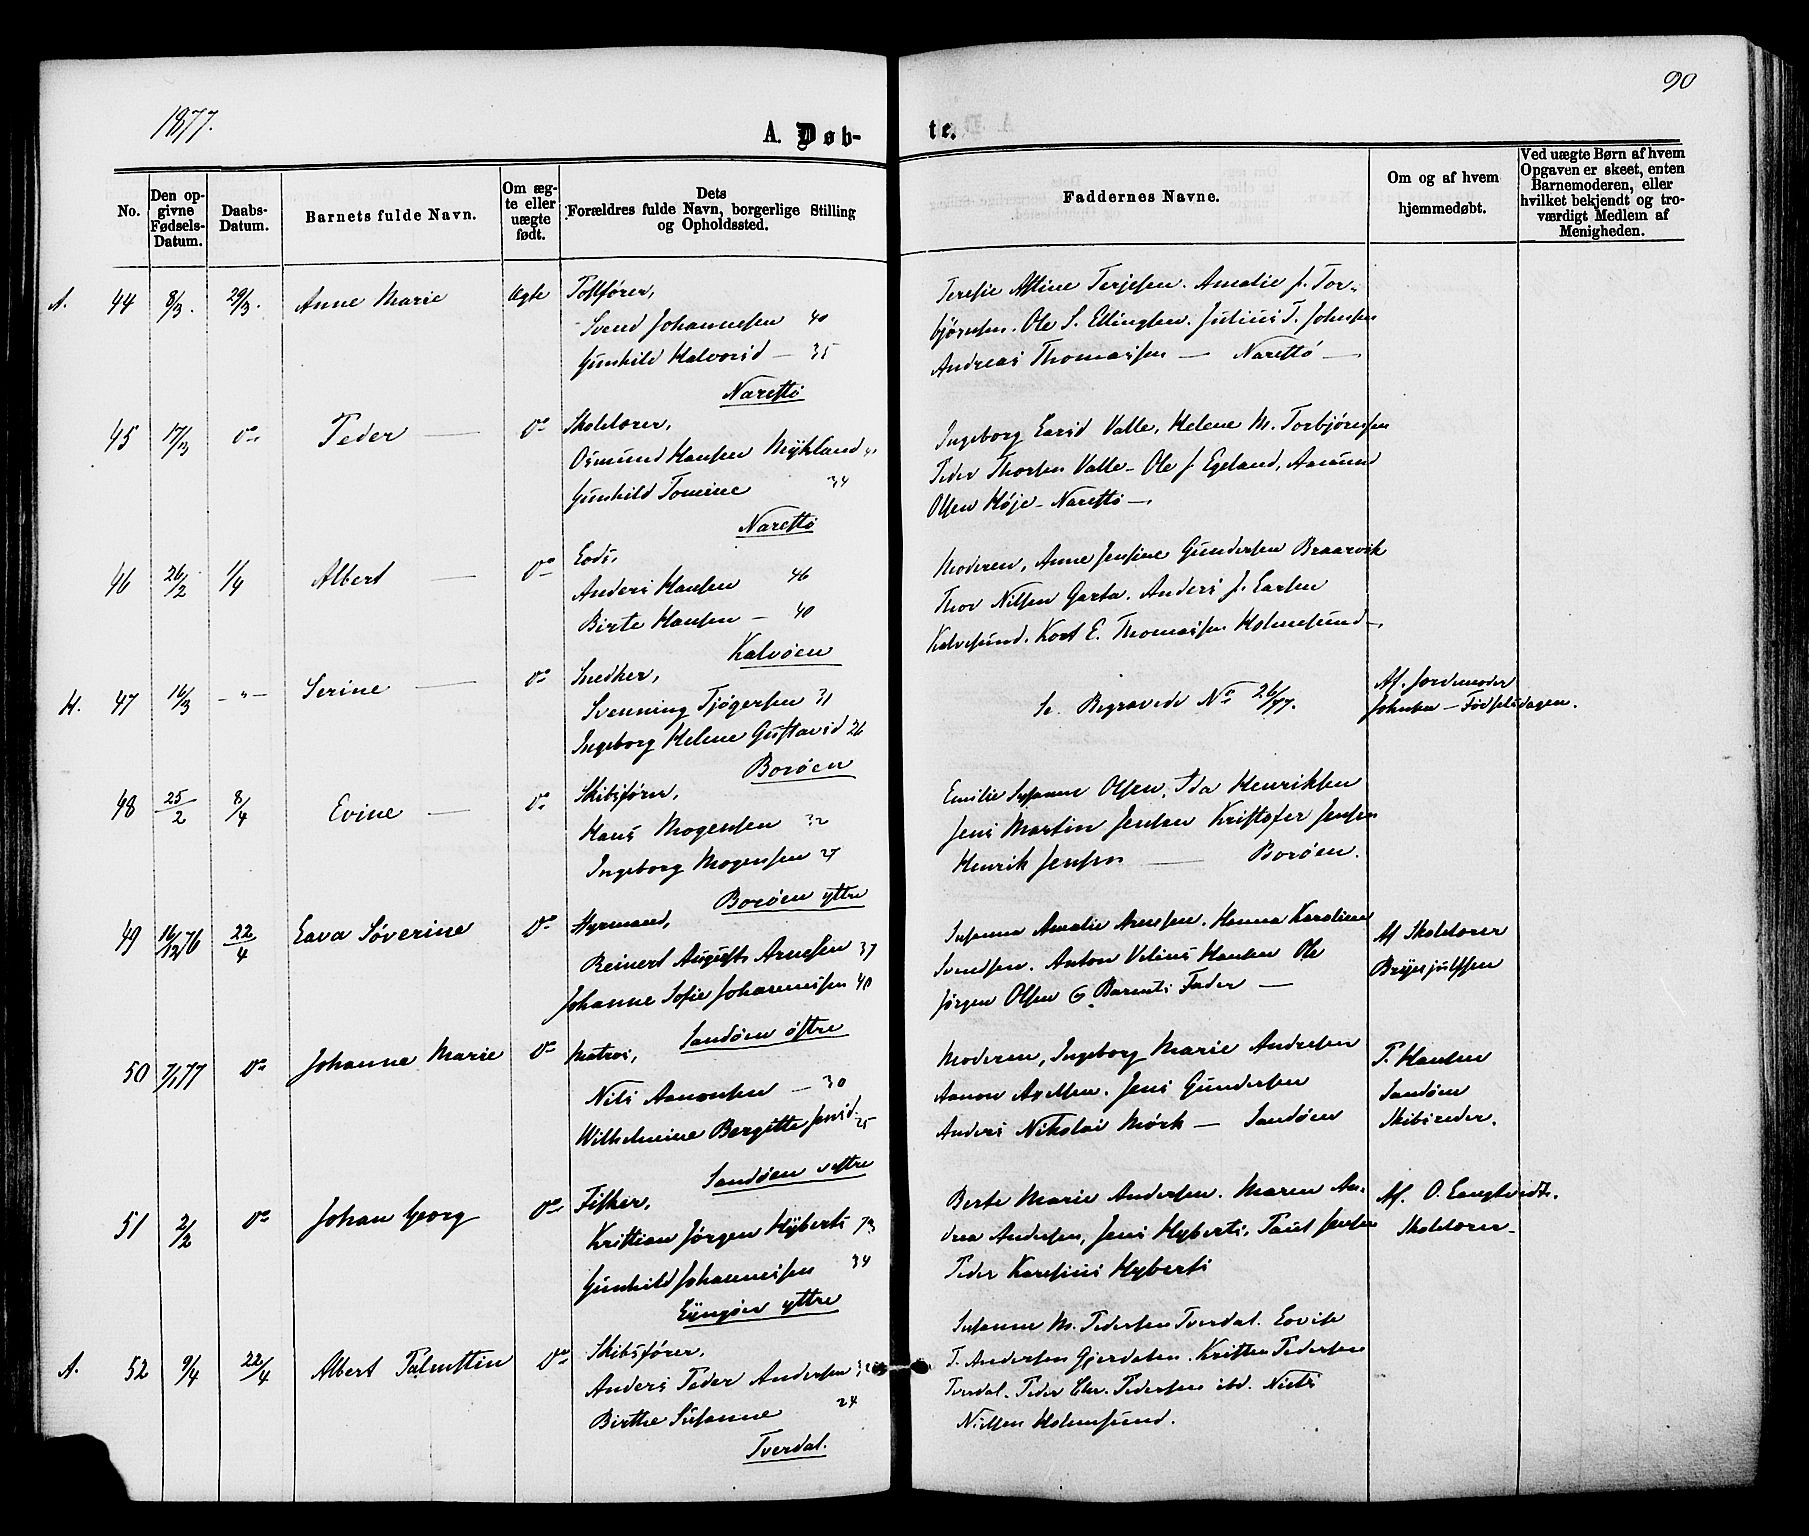 90
1877.
A. Døb-
te.
No.
Den op-
givne
Fødsels-
Datum.
Daabs-
Datum.
Barnets fulde Navn.
Om æg-
te eller
uægte
født.
Dets
Forældres fulde Navn, borgerlige Stilling
og Opholdssted.
Faddernes Navne.
Om og af hvem
hjemmedøbt.
Ved uægte Børn af hvem
Opgaven er skeet, enten
Barnemoderen, eller
hvilket bekjendt og tro-
værdigt Medlem af
Menigheden.
A. 44 8/3. 29/3. Anne Marie Ægte
Svend Johannesen 40
Gunhild Halvorsd — 35
Narestø
Teresie Terjesen. Amalie J. Tor-
bjørnsen. Ole S. Ellingsen. Julius T. Johnsen
Andreas Thomassen — Narestø —
45 17/3 Do Peder — Do Skolelærer,
Osmund Hansen Mykland
Gunhild Tomine 34
Narestø
Ingeborg Larsd Valle, Helene M. Torbjørnsen
Peder Thorsen Valle — Ole J. Egeland, Aamund
Olsen Høje — Narestø —.
46 26/2 1/4 Albert — Do Lods,
Anders Hansen 46
Birte Hansen — 40
Kalvøen
Moderen, Anne Jensine Gundersen Braarvik
Thor Nilsen Garta. Anders J. Larsen
Kalvesund. Kort E. Thomassen Holmesund —.
H. 47 16/3 — " — Serine — Do Snedker,
Svenning Tjøgersen 31
Ingeborg Helene Gustavsd 26
Borøen
Se Begravede No 26/77.
Af Jordemoder
Johnsen — Fødselsdagen.
48 25/2 8/4 Evine — Do Skibsfører,
Hans Mogensen 32
Ingeborg Mogensen 27
Borøen yttre
Emilie Susanne Olsen, Ida Henriksen
Jens Martin Jensen Kristofer Jensen
Henrik Jensen — Borøen.
49 16/12 76 22/4 Lava Søverine Do Styrmand,
Reinert August Arnesen 37
Johanne Sofie Johannessen 40
Sandøen østre
Susanna Amalie Arnesen. Hanna Karoline
Svendsen. Anton Velius Hansen Ole
Jørgen Olsen G Barnets Fader —
Af Skolelærer
Brynjulfsen
50 7/1 77 Do Johanne Marie Do Matros,
Nils Aanonsen — 30
Wilhelmine Bergitte Jensd. 25
Sandøen vestre
Moderen, Ingeborg Marie Andersen
Aanon Axelsen. Jens Gundersen
Anders Nikolai Mørk — Sandøen
T. Hansen
Sandøen
Skibsreder.
51 2/2 Do Johan Georg Do Fisker,
Kristian Jørgen Hyberts 73
Gunhild Johannessen 34
Lyngøer yttre
Berte Marie Andersen. Maren An-
drea Andersen, Jens Hyberts, Paul Jensen
Peder Karesius Hyberts
Af. O. Langtvedt.
Skolelærer —
A. 52 9/4 22/4 Albert Palmstin Do Skibsfører,
Anders Peder Andersen
Birthe Susanne 24
Tverdal.
Susanne M. Pedersen Tverdal. Lovise
T. Andersen Gjerdalen. Kristen Pedersen
Tverdal. Peder Chr. Pedersen ibd. Niels
Nielsen Holmesund.